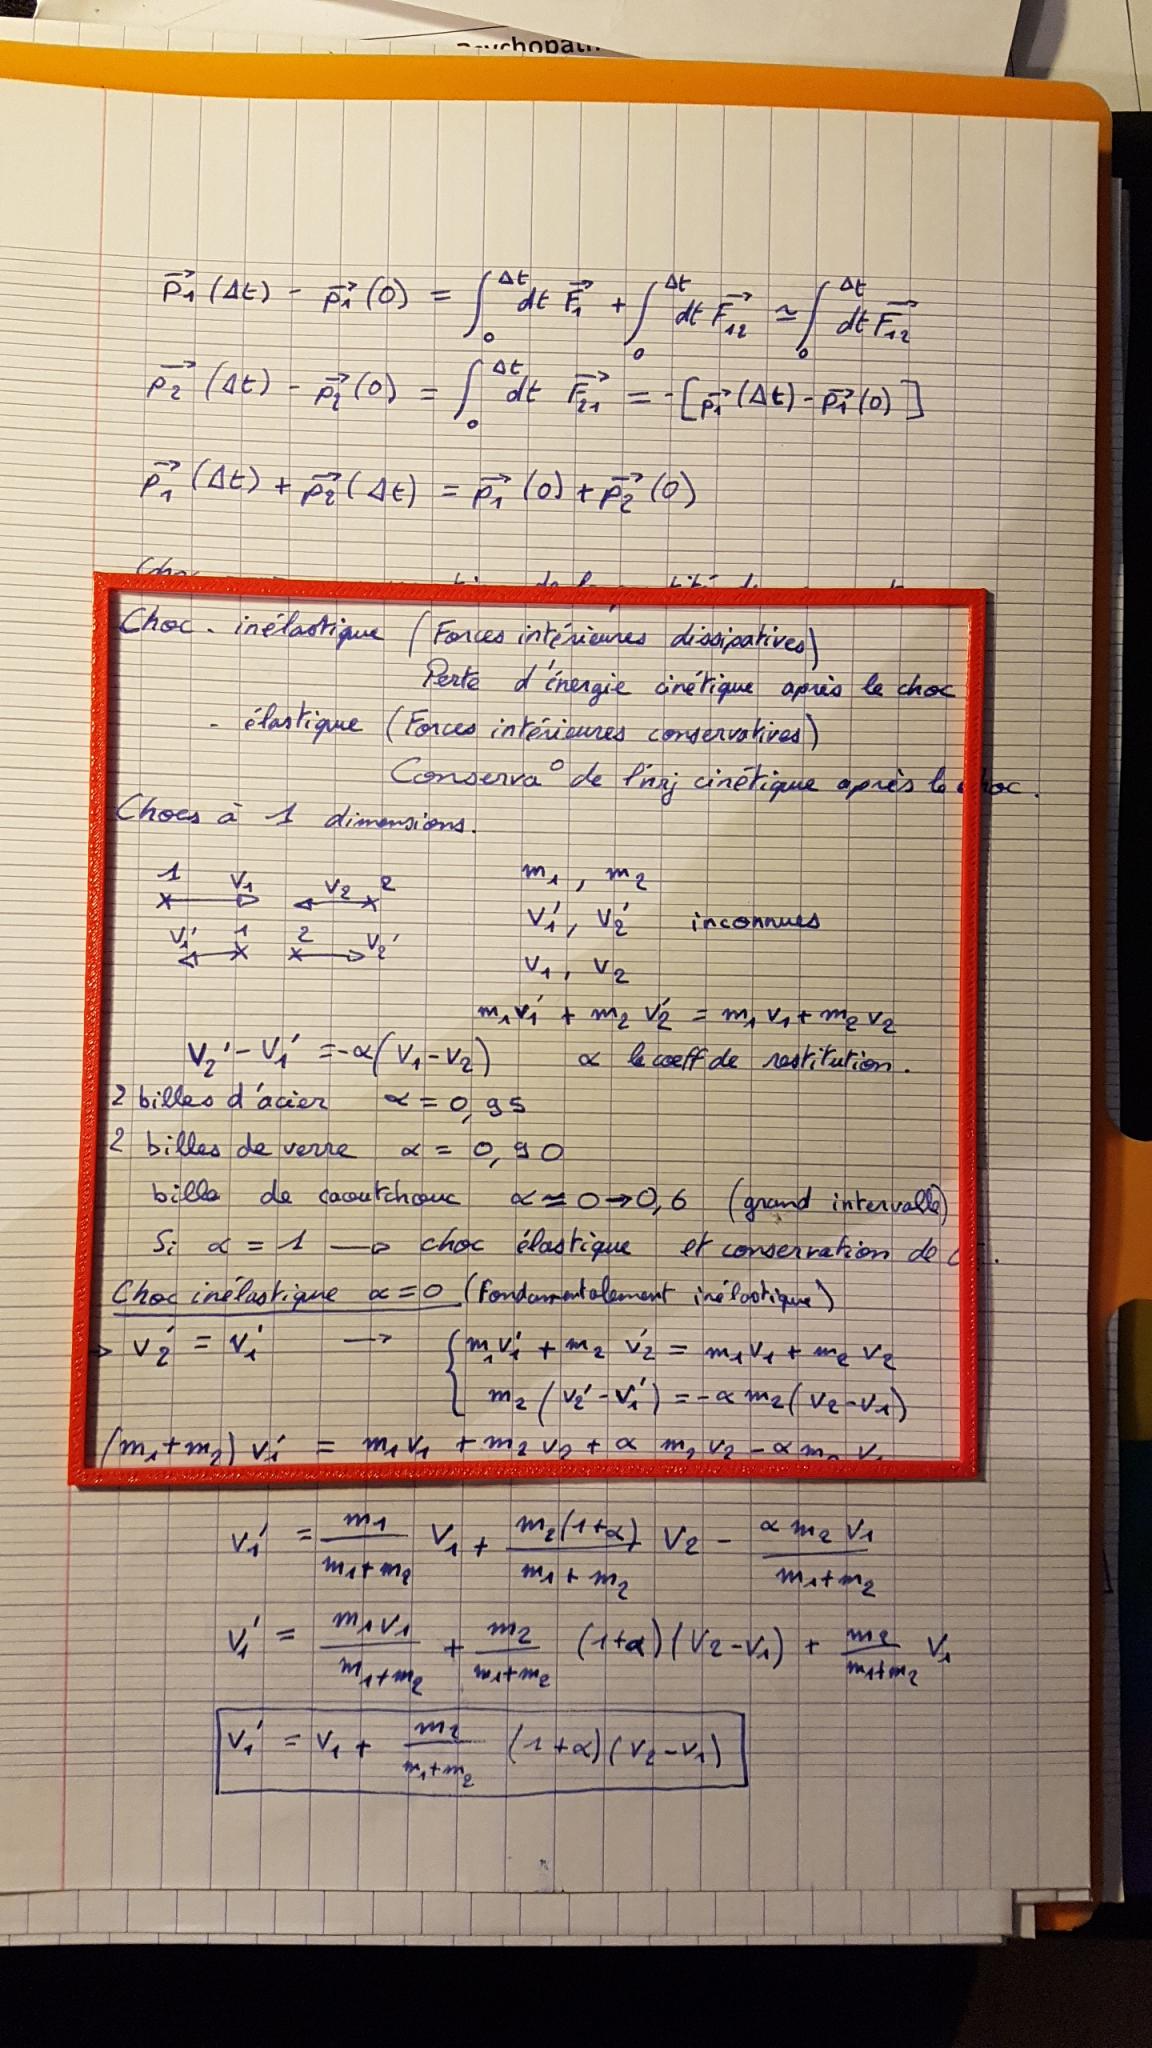 p₁⃗ (Δt) - p₁⃗ (0) = ∫₀^Δt dt F₁⃗ + ∫₀^Δt dt F₁₂⃗ ≃ ∫₀^Δt dt F₁₂⃗
p₂⃗ (Δt) - p₂⃗ (0) = ∫₀^Δt dt F₂₁⃗ = -[p₁⃗ (Δt) - p₁⃗ (0)]
p₁⃗ (Δt) + p₂⃗ (Δt) = p₁⃗ (0) + p₂⃗ (0)
Choc - inélastique (Forces intérieures dissipatives)
Perte d'énergie cinétique après le choc
- élastique (Forces intérieures conservatives)
Conserva° de l'nrj cinétique après le choc.
Chocs à 1 dimensions.
1 V₁ V₂ 2
m₁, m₂
V₁' 1 2 V₂'
V₁', V₂' inconnues
V₁, V₂
m₁ v₁' + m₂ v₂' = m₁ v₁ + m₂ v₂
V₂' - V₁' = -α(V₁ - V₂) α le coeff de restitution.
2 billes d'acier α = 0,95
2 billes de verre α = 0,90
bille de caoutchouc α ≃ 0 → 0,6 (grand intervalle)
Si α = 1 → choc élastique et conservation de
Choc inélastique α = 0 (fondamentalement inélastique)
→ v₂' = v₁' → { m₁v₁' + m₂ v₂' = m₁v₁ + m₂ v₂
m₂ (v₂' - v₁') = -α m₂ (v₂ - v₁)
(m₁+m₂) v₁' = m₁v₁ + m₂ v₂ + α m₂ v₂ - α m₂ v₁
v₁' = m₁/(m₁+m₂) V₁ + m₂(1+α)/(m₁+m₂) V₂ - α m₂ v₁/(m₁+m₂)
v₁' = m₁v₁/(m₁+m₂) + m₂/(m₁+m₂) (1+α)(V₂-V₁) + m₂/(m₁+m₂) V₁
v₁' = v₁ + m₂/(m₁+m₂) (1+α)(v₂-v₁)